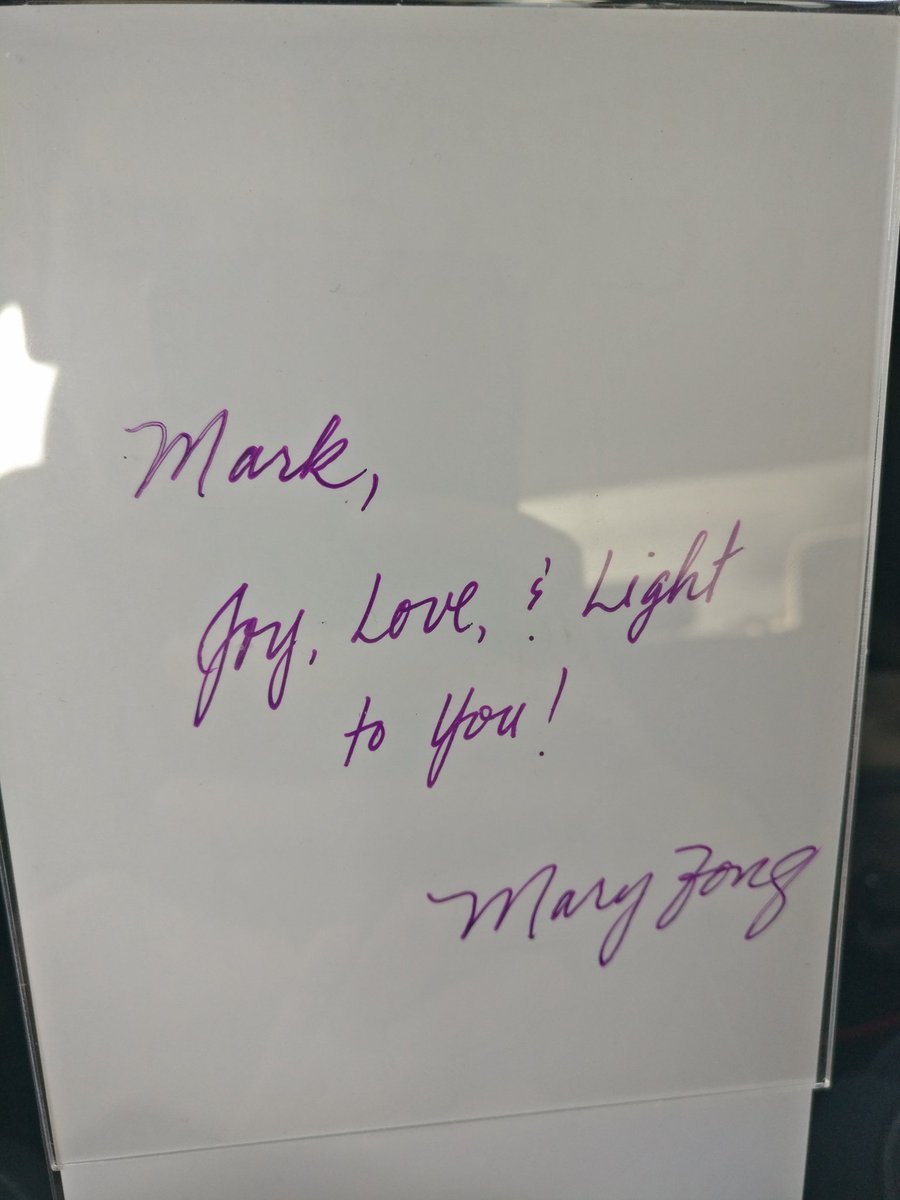 Mark,
Joy, Love, & Light
to you!
Mary Fong